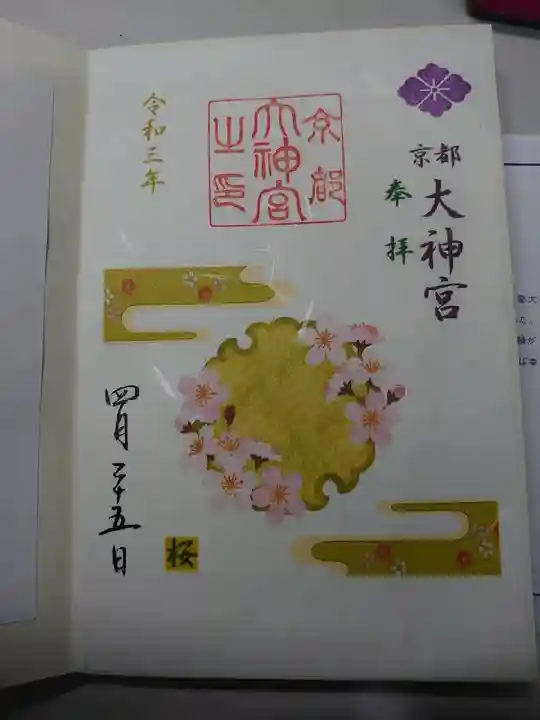 京都
大神宮
奉拝
京都
大神宮
之印
令和三年
四月二十五日
桜